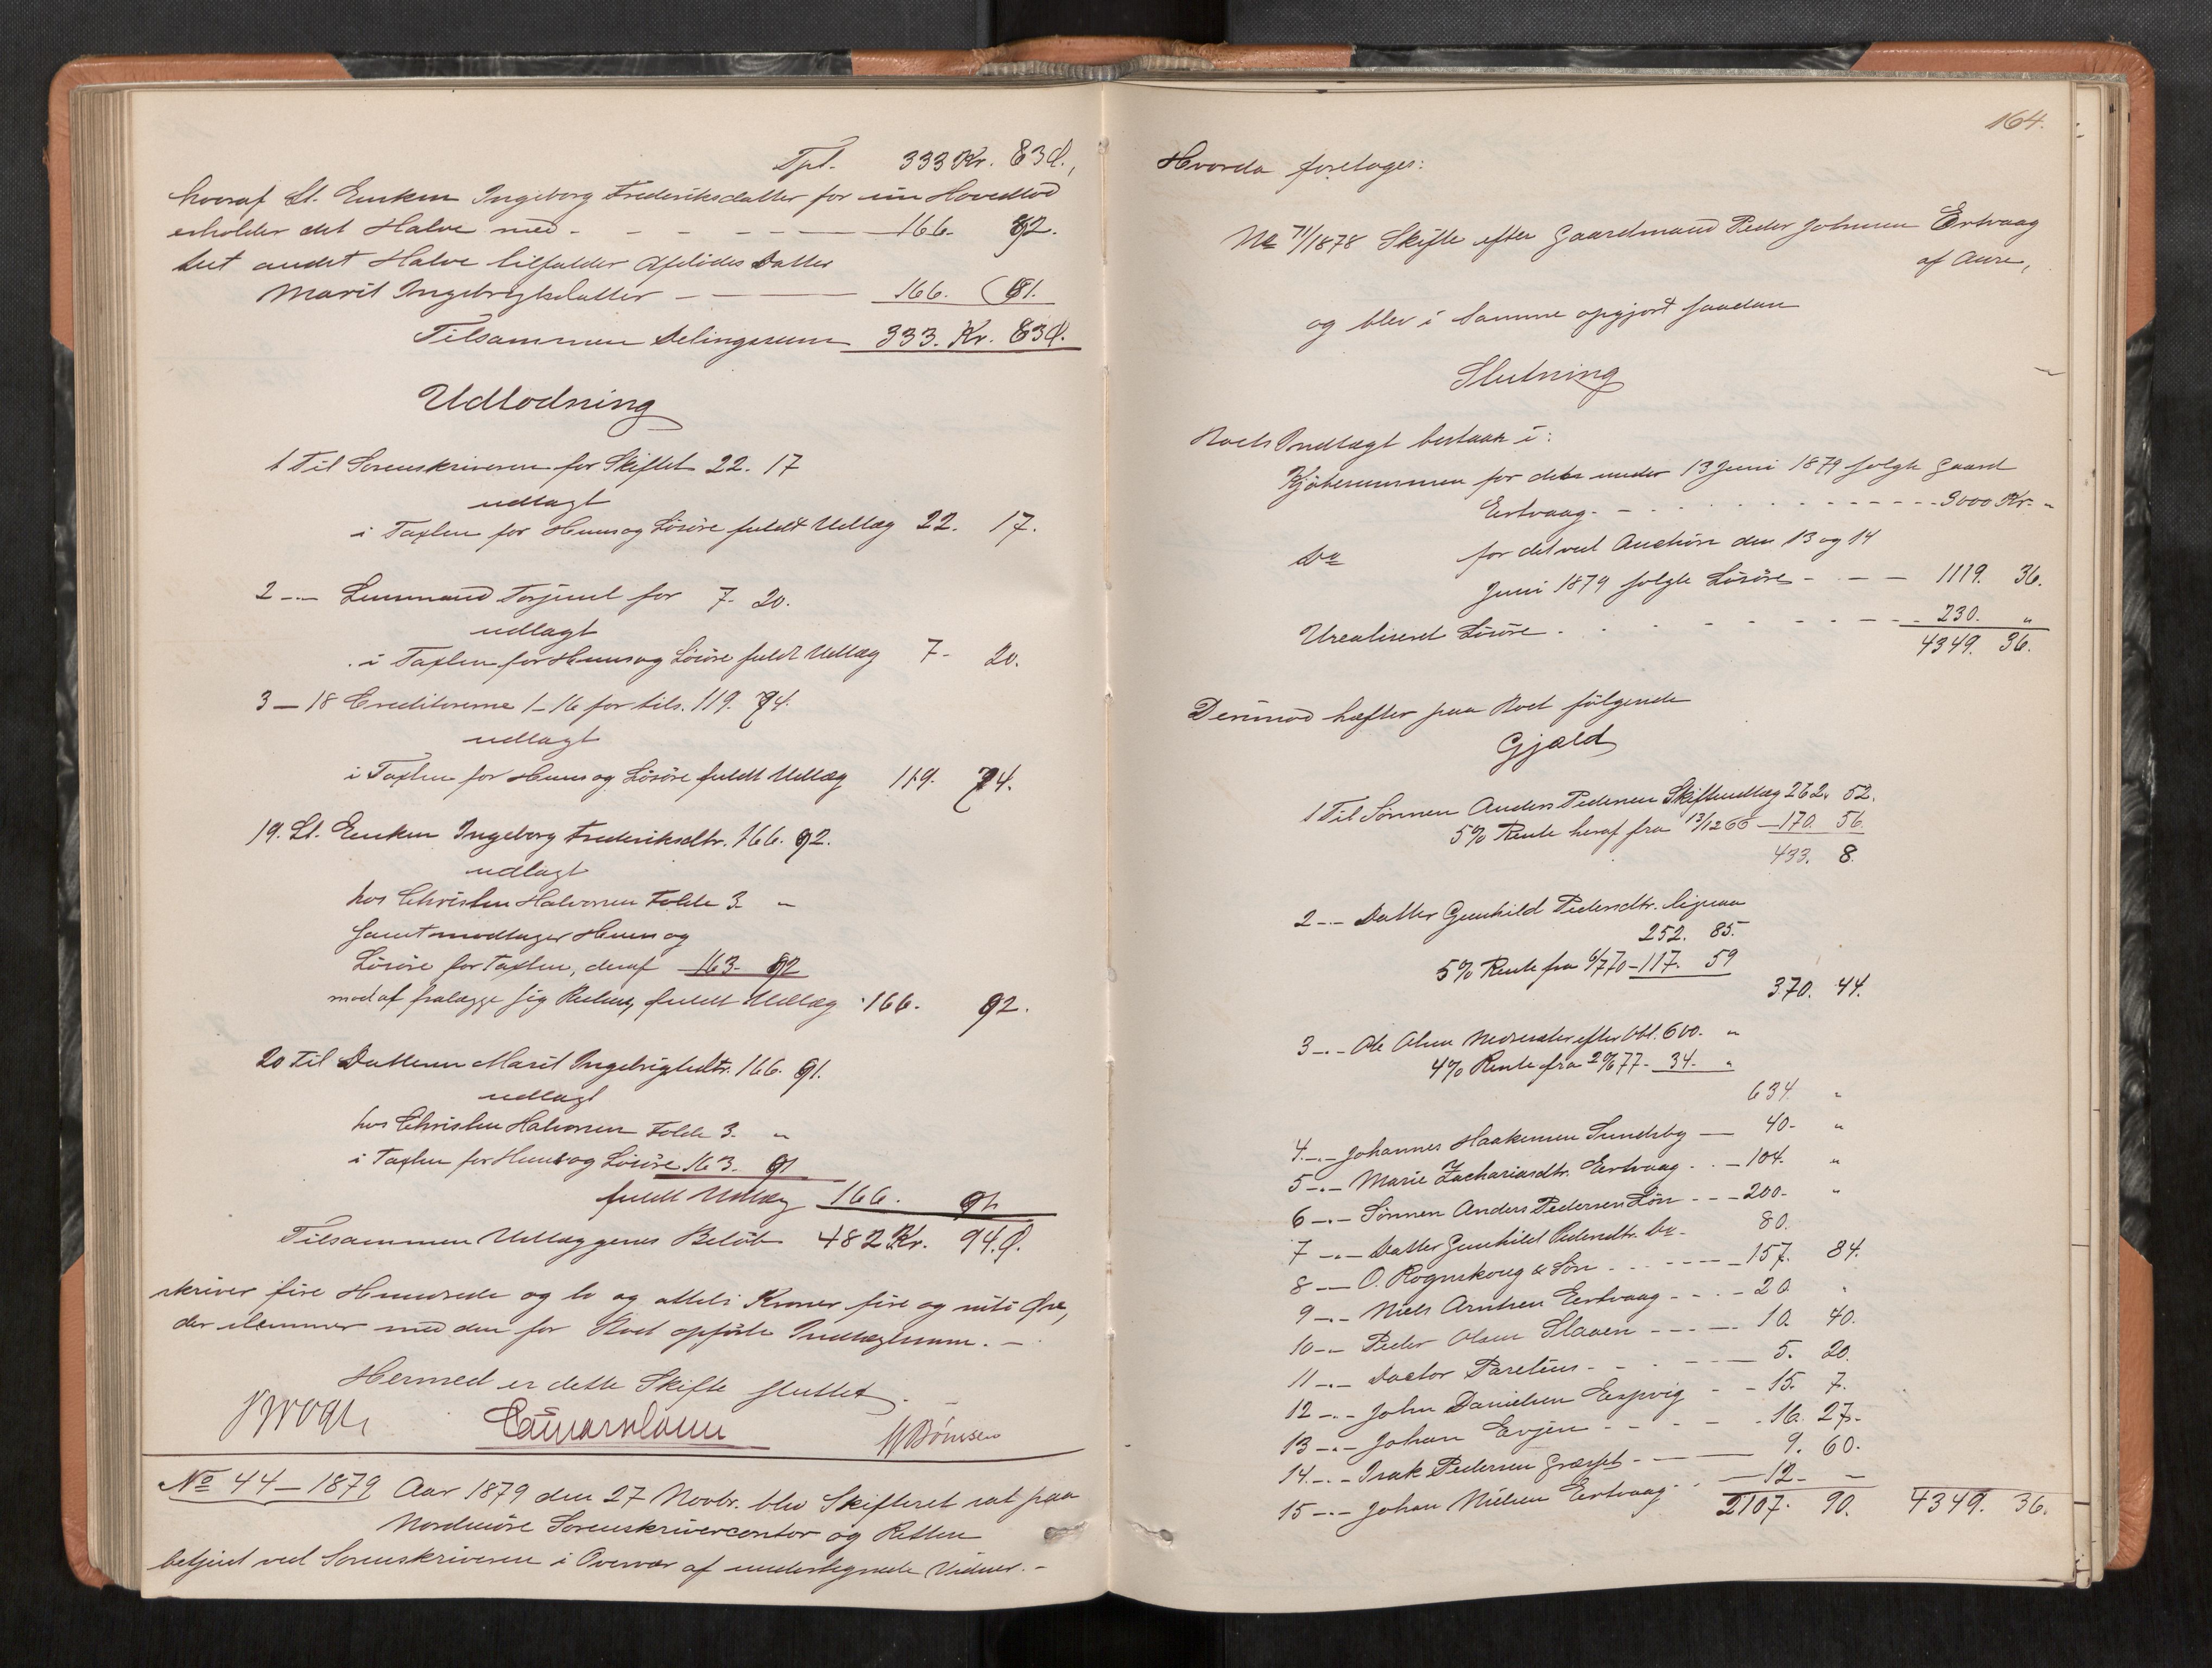 Tpt. 333 Kr. 83 Ø.,
hvoraf St. Enken Ingeborg Frederiksdatter for sin Hovedlod
erholder det Halve med - - - - 166. 92.
det andet Halve tilfalder Afdødes Datter
Marit Ingebrigtsdatter - 166. 91.
Tilsammen Delingssum 333. Kr. 83 Ø.
Udlodning
1 Til Sorenskriveren for Skiftet 22. 17
udlagt
i Taxten for Huus og Løsøre fuldt Udlæg 22. 17.
2 -.- Lensmand Torjuul for 7. 20.
udlagt
i Taxten for Huus og Løsøre fuldt Udlæg 7. 20.
3 - 18 Creditorerne 1-16 for tils. 119. 74.
udlagt
i Taxten for Huus og Løsøre fuldt Udlæg 119. 74.
19. St. Enken Ingeborg Frederiksdtr. 166. 92.
udlagt
hos Christen Halvorsen Folde 3. "
samt modtager Huus og
Løsøre for Taxten, deraf 163. 92
mod at fralægge sig Resten, fuldt Udlæg 166. 92.
20 Til Datteren Marit Ingebrigtsdtr. 166. 91.
udlagt
hos Christen Halvorsen Folde 3. "
i Taxten for Huus og Løsøre 163. 91
fuldt Udlæg 166. 91
Tilsammen Udlæggenes Beløb 482 Kr. 94. Ø.
skriver fire Hundrede og to og otteti Kroner fire og niti Øre,
der stemmer med den for Boet opførte Indtægtssum. -
Hermed er dette Skifte sluttet.
No 44 - 1879 Aar 1879 den 27 Novbr. blev Skifteret sat paa
Nordmøre Sorenskrivercontor og Retten
betjent ved Sorenskriveren i Overvær af undertegnede Vidner. -
164.
Hvorda foretoges:
No 71/1878 Skifte efter Gaardmand Peder Johnsen Ertvaag
af Aure,
og blev i Samme opgjort saadan
Slutning
Boets Indtægt bestaar i:
Kjøbesummen for den under 13 Juni 1879 solgte Gaard
Ertvaag - - - - 3000 Kr. "
Do for det ved Auction den 13 og 14
Juni 1879 solgte Løsøre - - - 1119. 36.
Urealiseret Løsøre - - - - 230. "
4349. 36.
Derimod hæfter paa Boet følgende
Gjæld
1 Til Sønnen Anders Pedersen Skifteudlæg 262. 52.
5% Rente heraf fra 13/12 66 - 170. 56.
433. 8.
2 -.- Datter Gunhild Pedersdtr. ligesaa
252. 85.
5% Rente fra 6/7 70 - 117. 59
370. 44.
3 -.- Ole Olsen efter Obl. 600. "
4% Rente fra 77 - 34. "
634. "
4 -.- Johannes Haakensen Sundsby - 40. "
5 -.- Marie Zachariasdtr. Ertvaag - - 104. "
6 -.- Sønnen Anders Pedersen Løn - - - 200. "
7 -.- Datter Gunhild Pedersdtr. Do - 80.
8 - O. Rognskoug & Søn - - - 157. 84.
9 -.- Niels Arntsen Ertvaag - - - 20. "
10 -.- Peder Olsen Slaaen - - - 10. 40.
11 -.- Doctor Parelius - - - 5. 20.
12 -.- John Danielsen Espvig - - 15. 7.
13 -.- Johan Evjen - - - 16. 27.
14 -.- Isak Pedersen Græsset - - 9. 60.
15 -.- Johan Nielsen Ertvaag - 12 - -
2107. 90. 4349. 36.